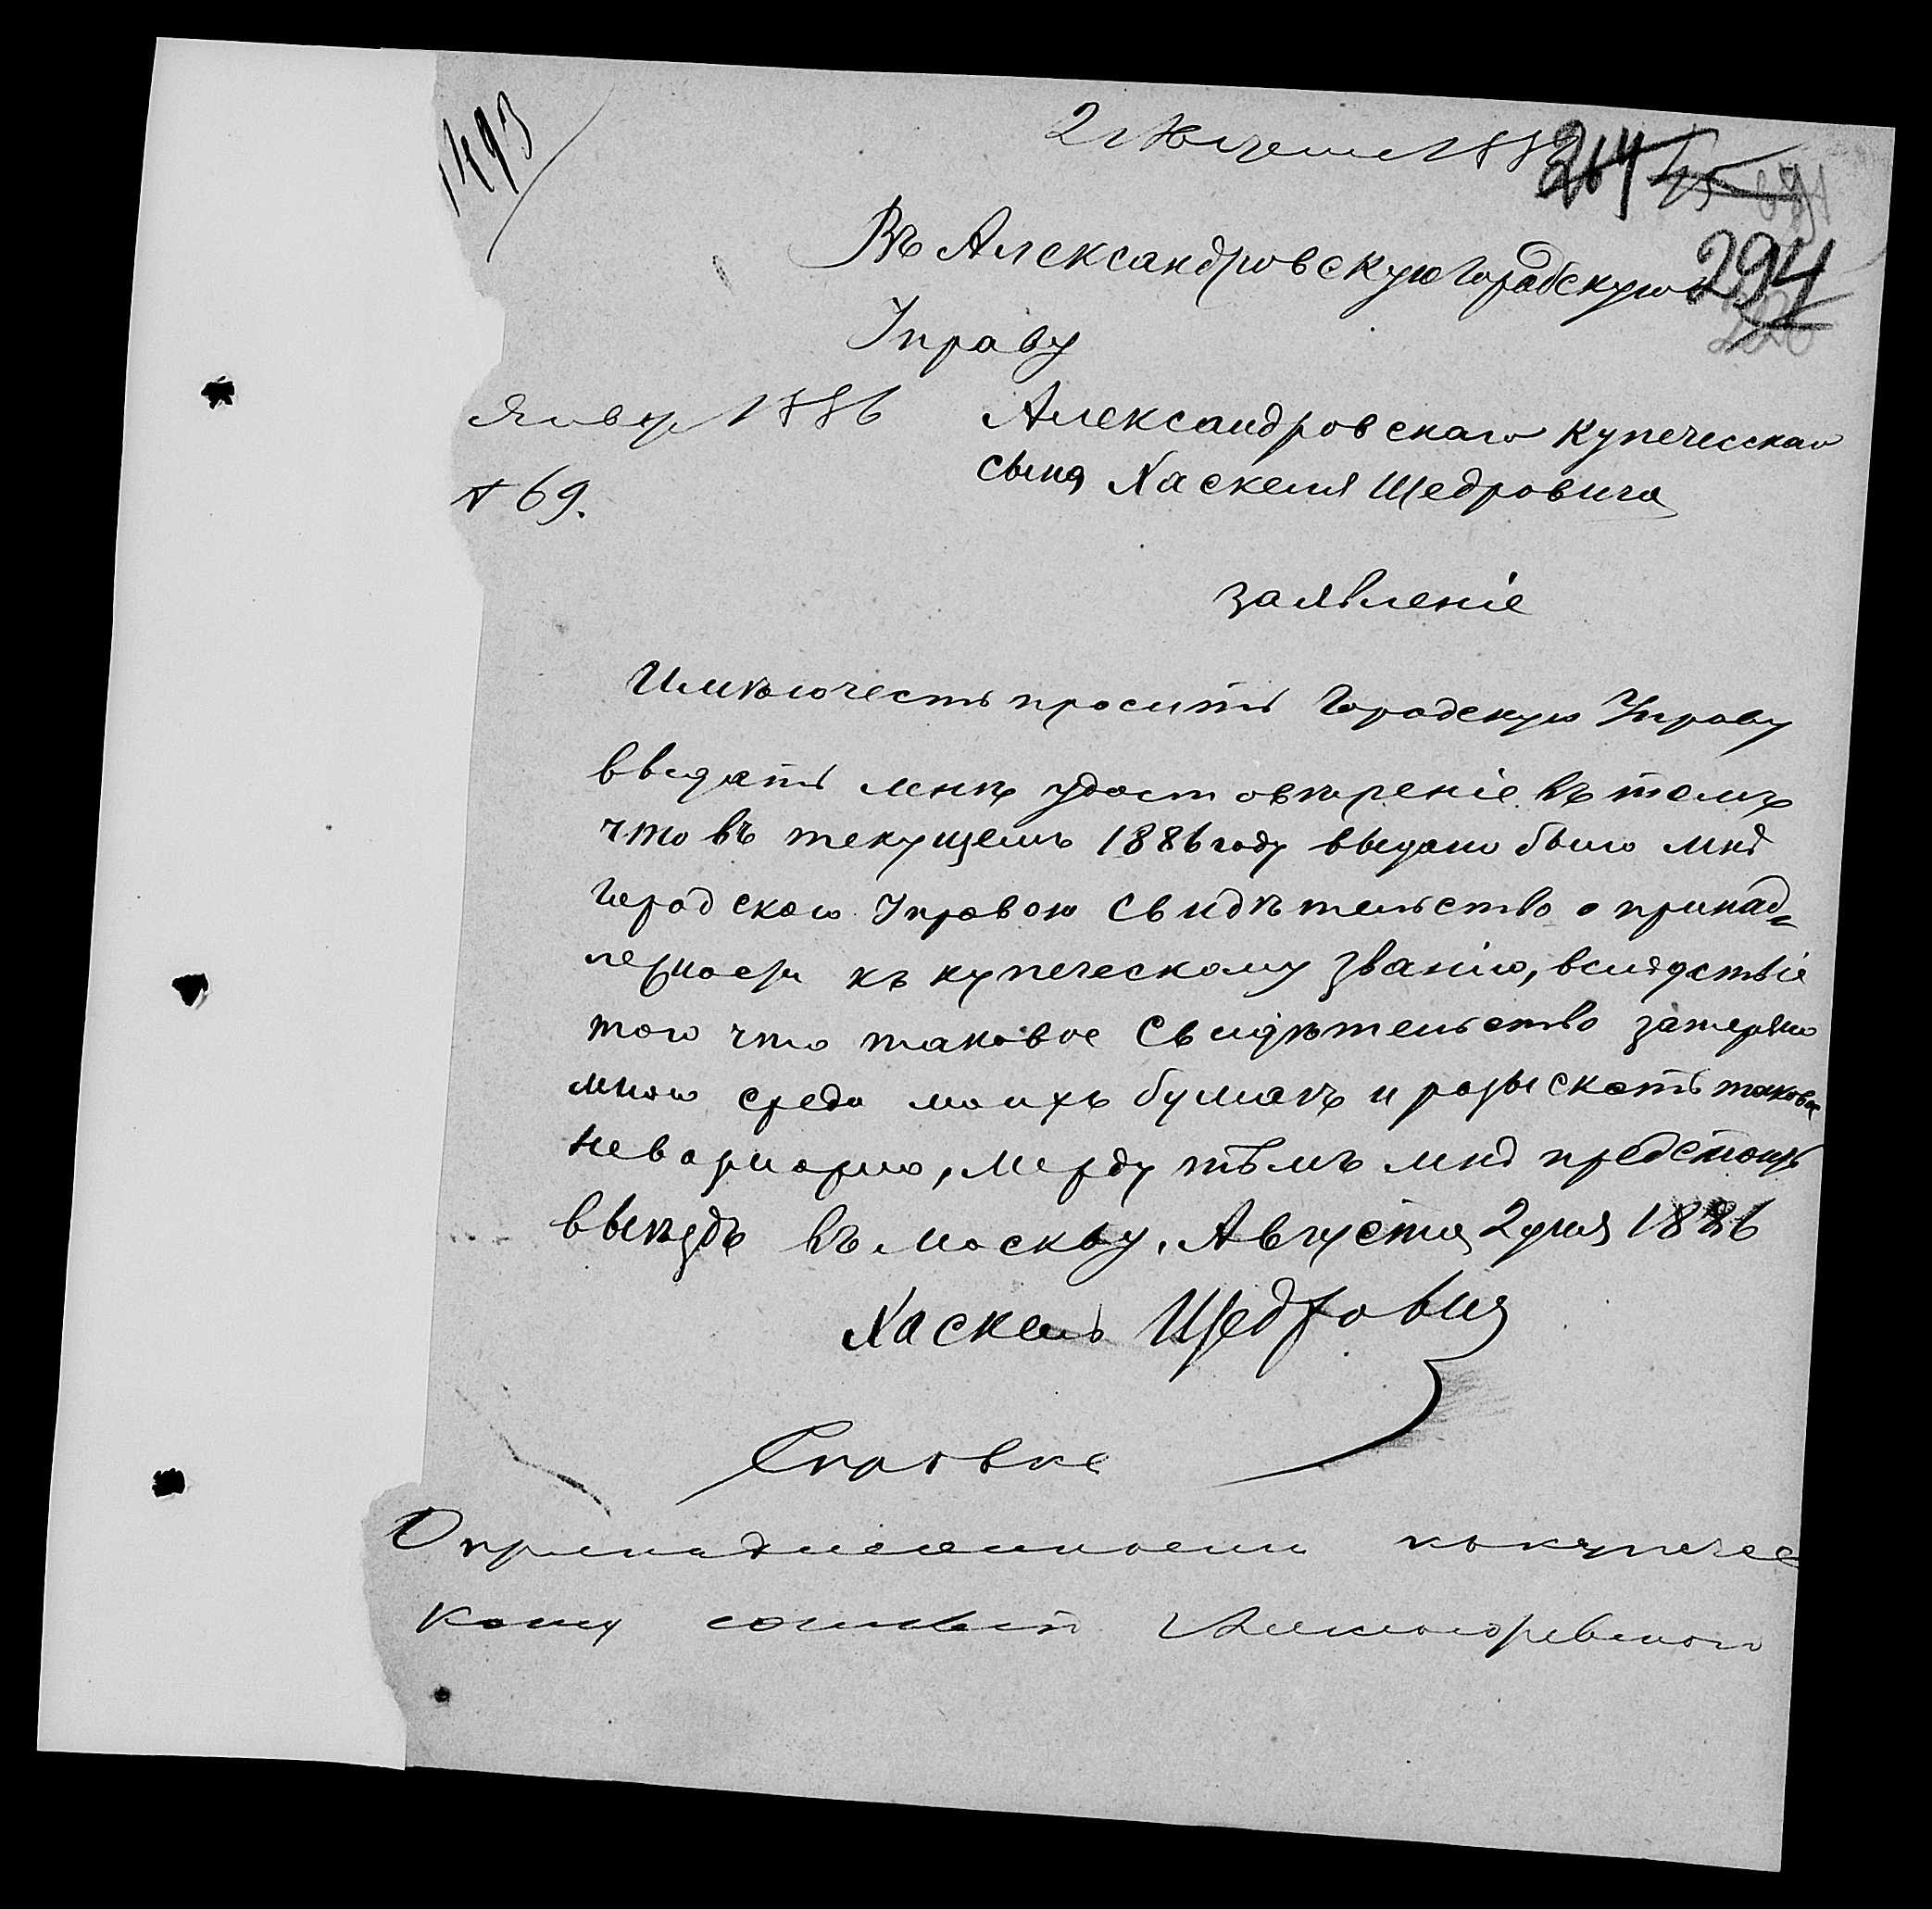 1493
2 Августа 188
264 45
294
Въ Александровскую Городскую
Управу
Январ 1886
№ 69.
Александровскаго Купеческаго
сына Хаскеля Щедровича
заявленіе
Имѣю честь просить Городскую Управу
выдать мнѣ удостовѣреніе въ томъ
что въ текущемъ 1886 году выдано было мнѣ
Городскою Управою Свидѣтельство о принад=
лежности къ купеческому званію, вслѣдствіе
того что таковое Свидѣтельство затеряно
мною среди моихъ бумагъ и розыскать таковое
невозможно, между тѣмъ мнѣ предстоитъ
выѣздъ въ Москву. Августа 2 дня 1886
Хаскель Щедровичъ
Справка
О принадлежности къ купечес
кому сословію Александровскаго